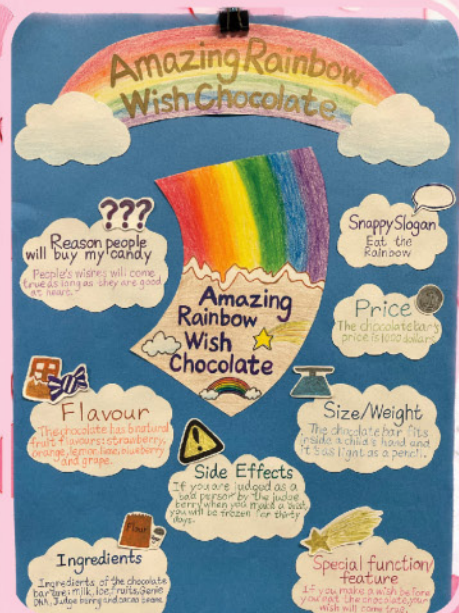 Amazing Rainbow
Wish Chocolate
???
Reason people
will buy my candy
People's wishes will come
true as long as they are good
at heart.
Snappy Slogan
Eat the
Rainbow
Amazing
Rainbow
Wish
Chocolate
Price
The chocolate bar's
price is 1000 dollars
Flavour
The chocolate has 6 natural
fruit flavours: strawberry,
orange, lemon, lime, blueberry
and grape.
Size/Weight
The chocolate bar fits
inside a child's hand and
it's as light as a pencil.
Side Effects
If you are judged as a
bad person by the judge
berry when you make a wish,
you will be frozen for thirty
days.
Flour
Ingredients
Ingredients of the chocolate
bar are: milk, ice, fruits, Genie
DNA, Judge berry and cocoa beans.
Special function/
feature
If you make a wish before
you eat the chocolate, your
wish will come true.